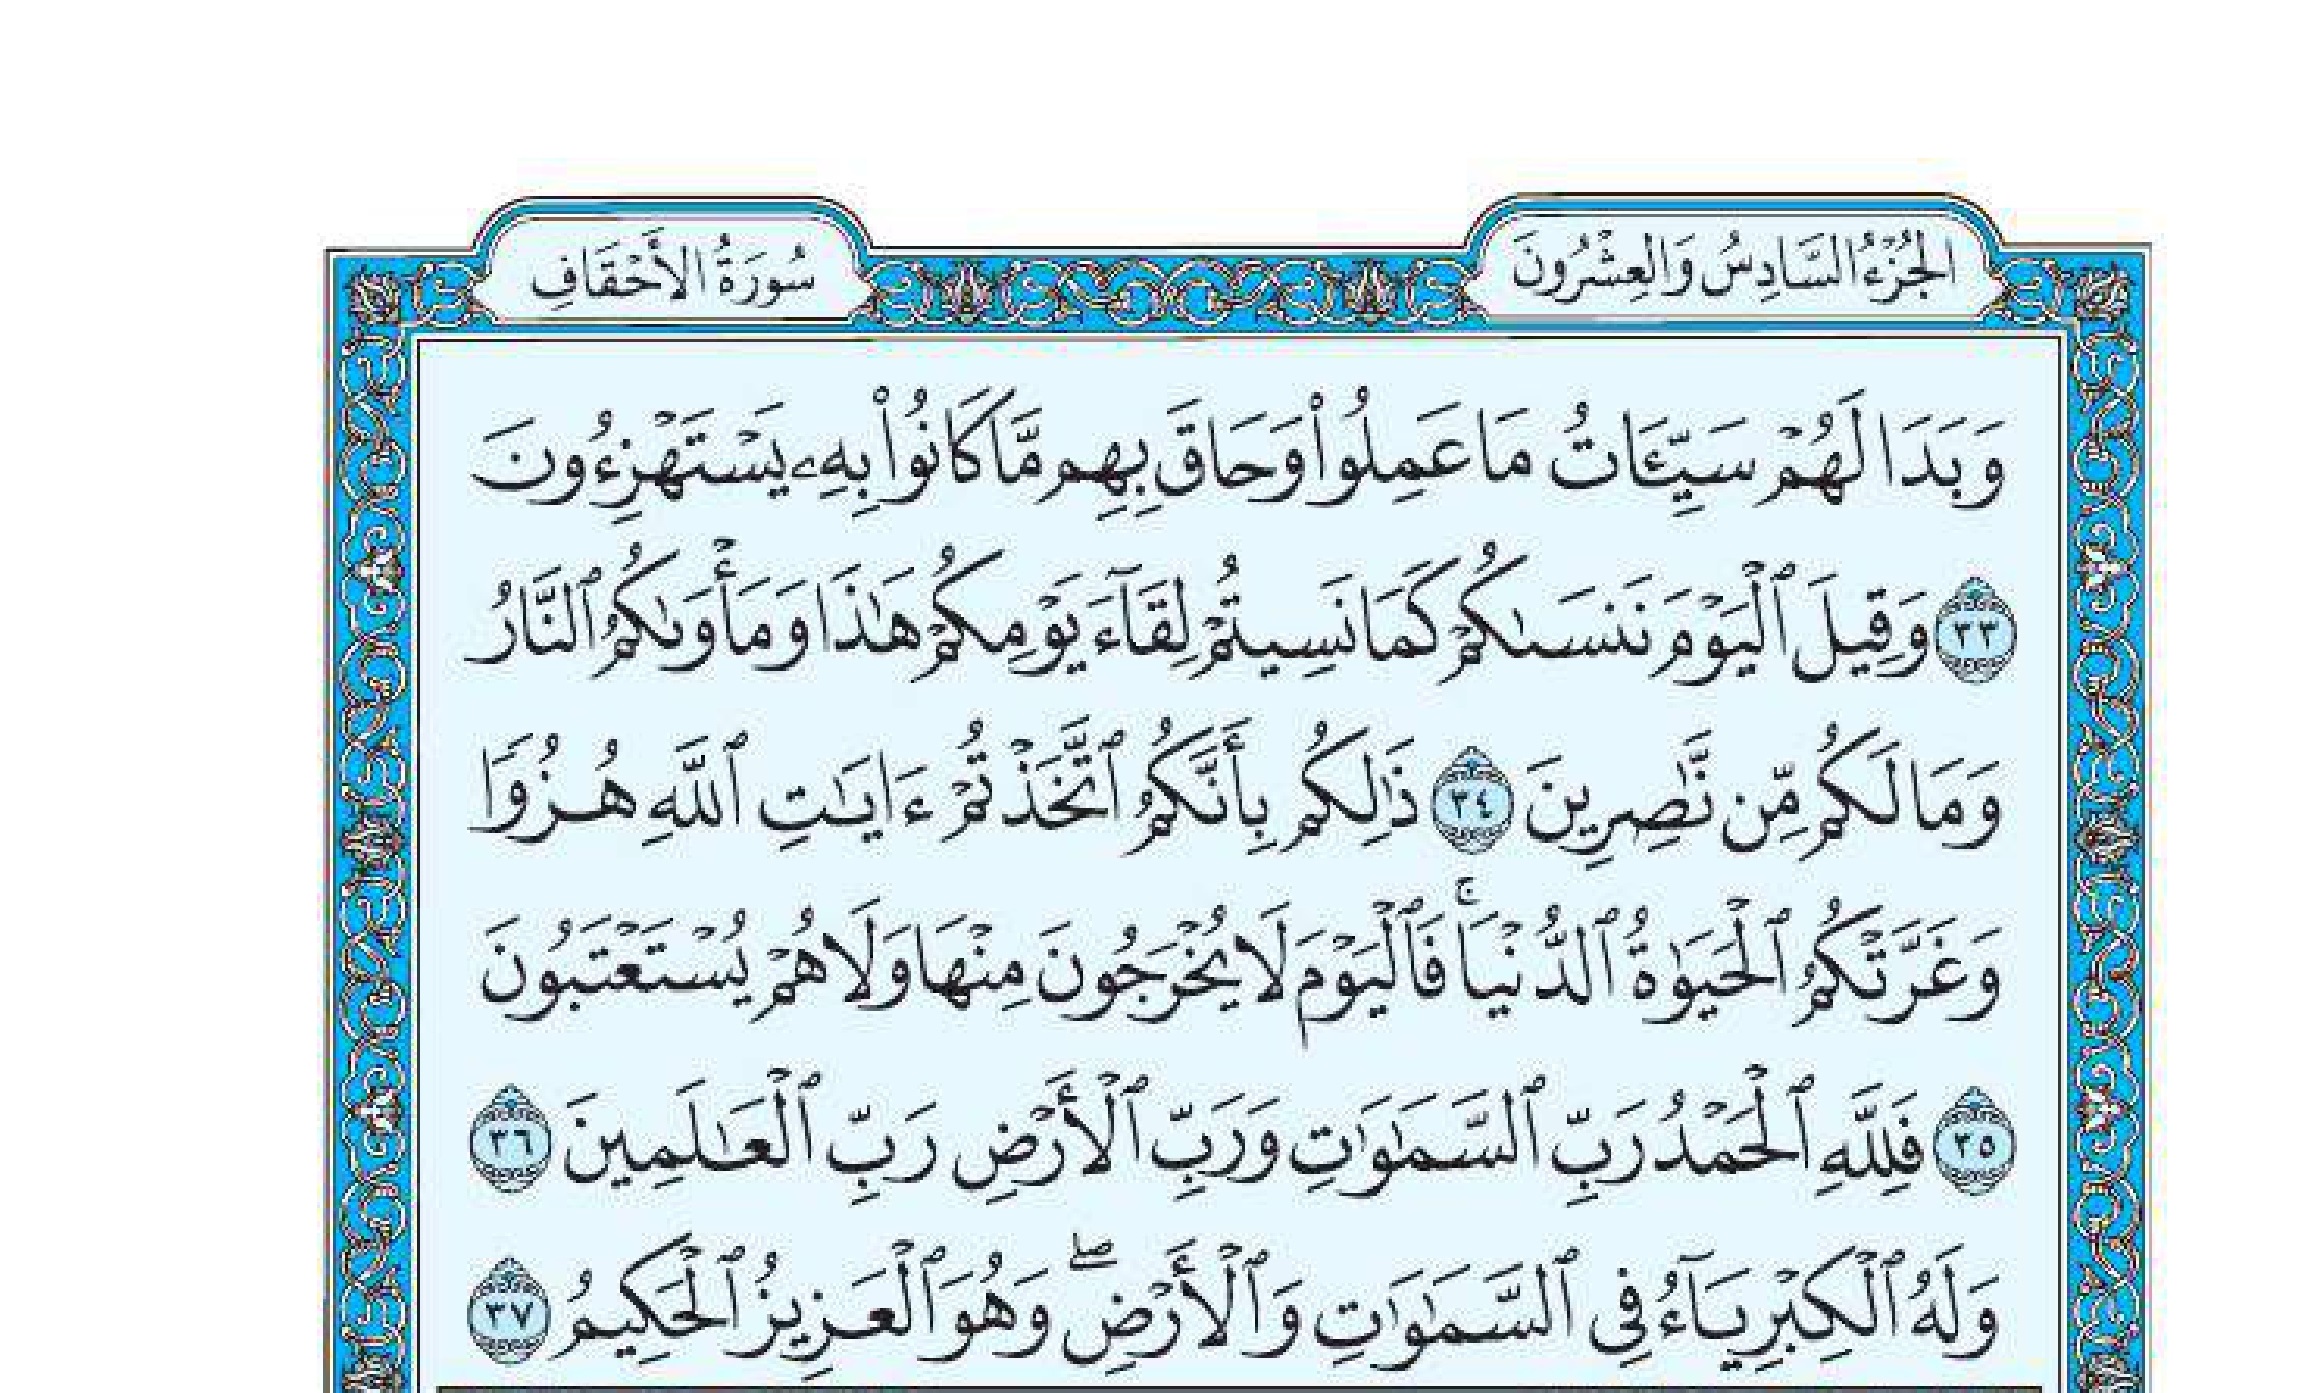 الجُزْءُ السَّادِسُ وَالعِشْرُونَ
سُورَةُ الأَحْقَافِ
وَبَدَا لَهُمْ سَيِّـَٔاتُ مَا عَمِلُوا۟ وَحَاقَ بِهِم مَّا كَانُوا۟ بِهِۦ يَسْتَهْزِءُونَ
٣٣ وَقِيلَ ٱلْيَوْمَ نَنسَىٰكُمْ كَمَا نَسِيتُمْ لِقَآءَ يَوْمِكُمْ هَـٰذَا وَمَأْوَىٰكُمُ ٱلنَّارُ
وَمَا لَكُم مِّن نَّـٰصِرِينَ ٣٤ ذَٰلِكُم بِأَنَّكُمُ ٱتَّخَذْتُمْ ءَايَـٰتِ ٱللَّهِ هُزُوًا
وَغَرَّتْكُمُ ٱلْحَيَوٰةُ ٱلدُّنْيَا ۚ فَٱلْيَوْمَ لَا يُخْرَجُونَ مِنْهَا وَلَا هُمْ يُسْتَعْتَبُونَ
٣٥ فَلِلَّهِ ٱلْحَمْدُ رَبِّ ٱلسَّمَـٰوَٰتِ وَرَبِّ ٱلْأَرْضِ رَبِّ ٱلْعَـٰلَمِينَ ٣٦
وَلَهُ ٱلْكِبْرِيَآءُ فِى ٱلسَّمَـٰوَٰتِ وَٱلْأَرْضِ ۖ وَهُوَ ٱلْعَزِيزُ ٱلْحَكِيمُ ٣٧